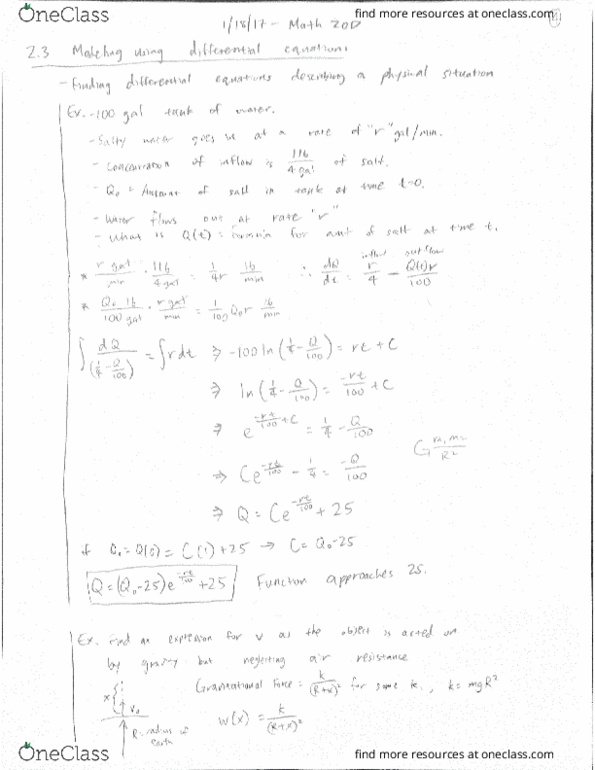 OneClass
find more resources at oneclass.com
1/18/17 - Math 20D
2.3 Modeling using differential equations
- Finding differential equations describing a physical situation
Ex. - 100 gal tank of water.
- Salty water goes in at a rate of "r" gal/min.
- Concentration of inflow is 1 lb / 4 gal of salt.
- Q₀ = Amount of salt in tank at time t=0.
- Water flows out at rate "r"
- What is Q(t) = formula for amt of salt at time t.
inflow outflow
* r gal/min · 1 lb/4 gal = 1/4 r lb/min ∴ dQ/dt = r/4 - Q(t)r/100
* Q₀ lb/100 gal · r gal/min = 1/100 Q₀r lb/min
∫ dQ/(1/4 - Q/100) = ∫ r dt ⇒ -100 ln(1/4 - Q/100) = rt + C
⇒ ln(1/4 - Q/100) = -rt/100 + C
⇒ e^(-rt/100 + C) = 1/4 - Q/100
G m₁m₂/R²
⇒ Ce^(-rt/100) - 1/4 = -Q/100
⇒ Q = Ce^(-rt/100) + 25
if Q₀ = Q(0) = C(1) + 25 → C = Q₀-25
Q = (Q₀-25)e^(-rt/100) + 25 Function approaches 25.
Ex. Find an expression for v as the object is acted on
by gravity but neglecting air resistance
Gravitational Force = k/(R+x)² for some k., k = mgR²
x v₀
w(x) = k/(R+x)²
R = radius of earth
OneClass
find more resources at oneclass.com